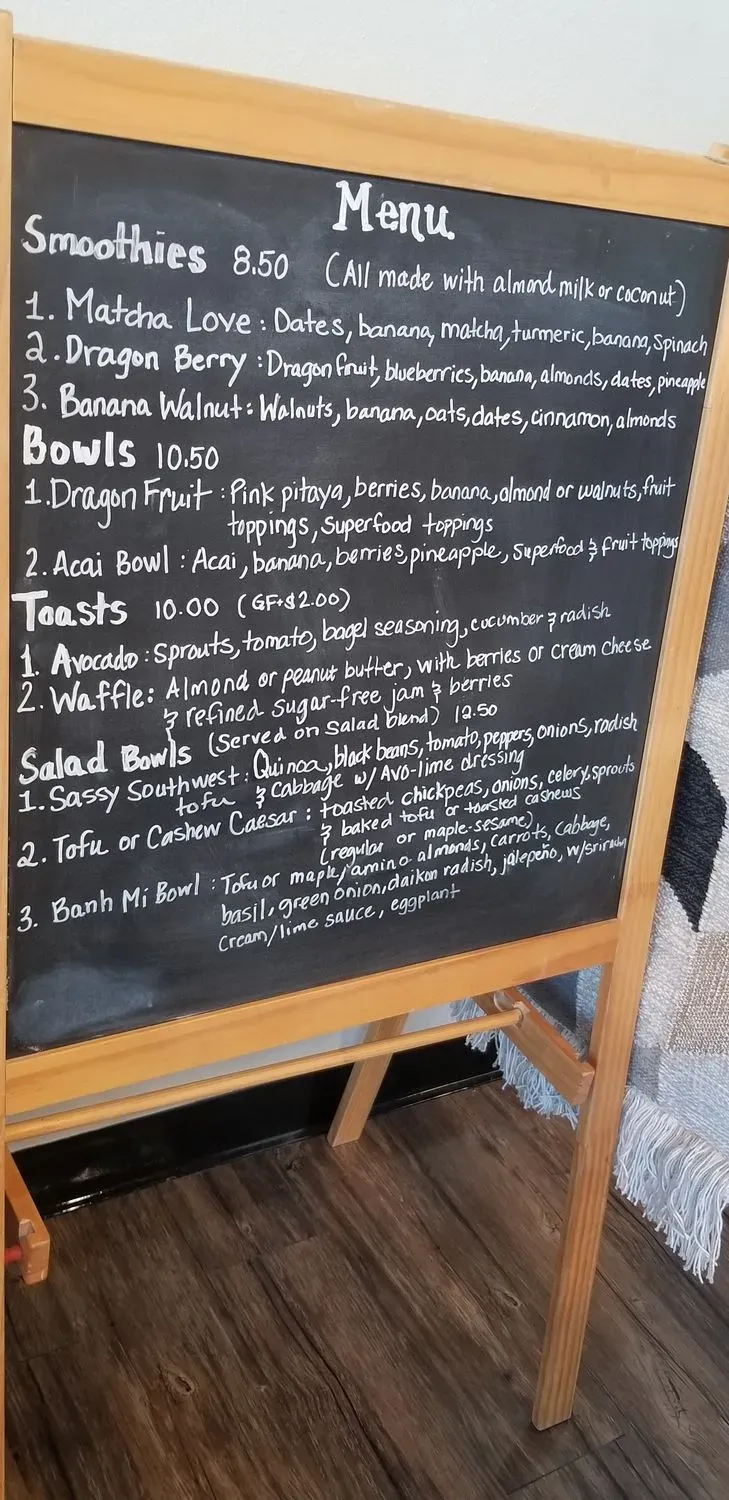 Menu
Smoothies 8.50 (All made with almond milk or coconut)
1. Matcha Love : Dates, banana, matcha, turmeric, banana, spinach
2. Dragon Berry : Dragon fruit, blueberries, banana, almonds, dates, pineapple
3. Banana Walnut : Walnuts, banana, oats, dates, cinnamon, almonds
Bowls 10.50
1. Dragon Fruit : Pink pitaya, berries, banana, almond or walnuts, fruit
toppings, Superfood toppings
2. Acai Bowl : Acai, banana, berries, pineapple, Superfood & fruit toppings
Toasts 10.00 (GF+$2.00)
1. Avocado : Sprouts, tomato, bagel seasoning, cucumber & radish
2. Waffle : Almond or peanut butter, with berries or cream cheese
& refined sugar-free jam & berries
Salad Bowls (Served on Salad blend) 12.50
1. Sassy Southwest : Quinoa, black beans, tomato, peppers, onions, radish
tofu & cabbage w/ Avo-lime dressing
2. Tofu or Cashew Caesar : toasted chickpeas, onions, celery, sprouts
& baked tofu or toasted cashews
(regular or maple-sesame)
3. Banh Mi Bowl : Tofu or maple/amino almonds, carrots, cabbage,
basil, green onion, daikon radish, jalepeño, w/sriracha
cream/lime sauce, eggplant